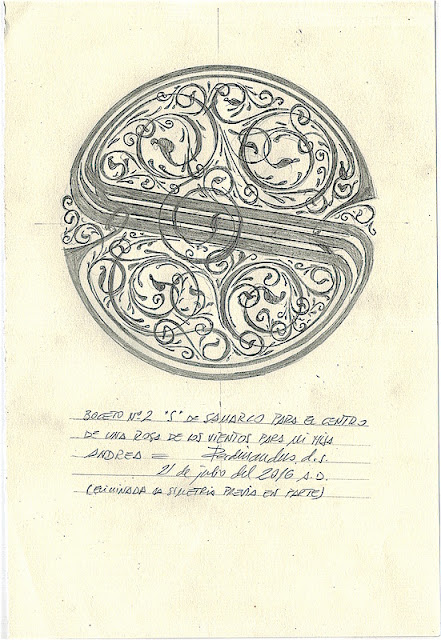 BOCETO Nº 2 "S" DE SAMARCO PARA EL CENTRO
DE UNA ROSA DE LOS VIENTOS PARA MI HIJA
ANDREA = Ferdinandus, d.s.
21 de julio del 2016 A.D.
(ELIMINADA LA SIMETRÍA PREVIA EN PARTE)